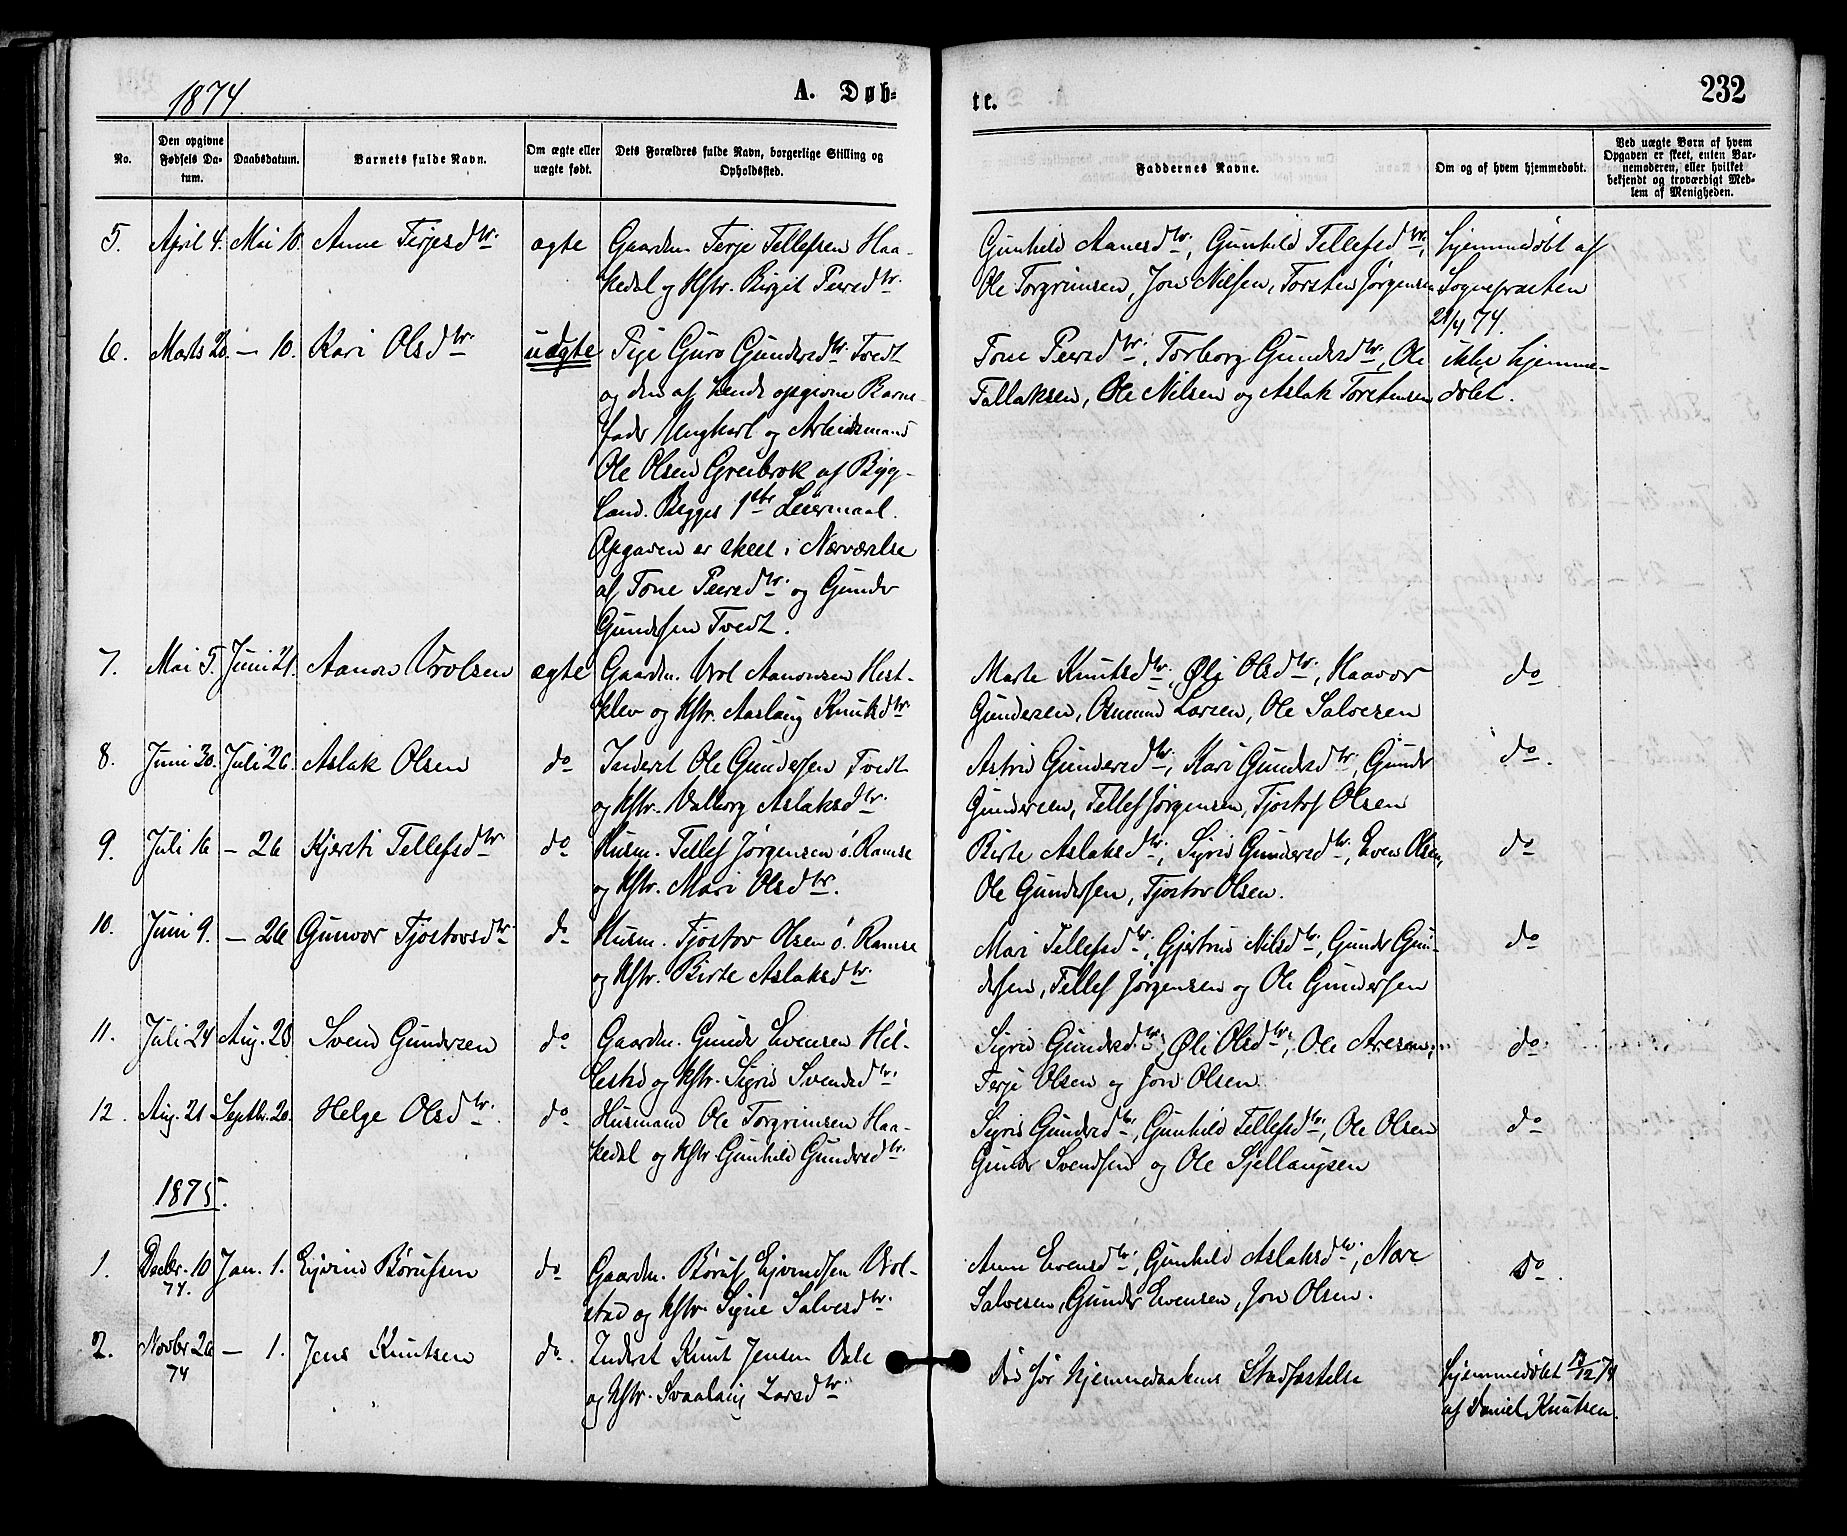 1874.
A. Døb-
te.
232
No.
Den opgivne Fødsels Da-tum.
Daabsdatum.
Barnets fulde Navn.
Om ægte eller uægte født.
Dets Forældres fulde Navn, borgerlige Stilling og Opholdssted.
Faddernes Navne.
Om og af hvem hjemmedøbt.
Ved uægte Børn af hvem
Opgaven er skeet, enten Bar-
nemoderen, eller hvilket
bekjendt og troværdigt Med-
lem af Menigheden.
5. April 4. Mai 10. Anne Terjesdtr. ægte Gaardm. Terje Tellefsen Haa- Gunhild Aanesdtr, Gunhild Tellefsdtr, hjemmedøbt af
kedal og Hstr. Birgit Peersdtr. Ole Torgrimsen, Jon Nilsen, Torsten Jørgensen Sognepræsten
21/4 74.
6. Marts 20. — 10. Kari Olsdtr. uægte Pige Guro Gundersdtr. Tvedt Tone Peersdtr, Torborg Gundersdtr, Ole ikke hjemme-
og den af hende opgivne Barne- Tallaksen, Ole Nilsen og Aslak Torstensen døbt.
fader Ungkarl og Arbeidsmand
Ole Olsen Greibrok af Byg-
land. Begges 1ste Leiermaal.
Opgaven er skeet i Nærværelse
af Tone Peersdtr. og Gunder
Gundersen Tvedt.
7. Mai 5. Juni 21. Aanon Vrolsen ægte Gaardm. Vrol Aanonsen Hest- Marte Knutsdtr, Øli Olsdtr, Haavor do
klev og Hstr. Aaslaug Knutsdtr Gundersen, Osmund Larsen, Ole Salvesen
8. Juni 30. Juli 26. Aslak Olsen do Inderst Ole Gundersen Tvedt Astrid Gundersdtr, Kari Gundersdtr, Gunder do.
og Hstr. Valborg Aslaksdtr. Gundersen, Tellef Jørgensen, Tjostof Olsen
9. Juli 16 — 26 Kjersti Tellefsdtr do Husm. Tellef Jørgensen ø. Ramse Birte Aslaksdtr, Sigrid Gundersdtr, Even Olsen, do
og Hstr. Mari Olsdtr. Ole Gundersen, Tjostov Olsen.
10. Juni 9. — 26 Gunvor Tjostovsdtr do Husm. Tjostov Olsen ø. Ramse Mari Tellefsdtr, Gjertrud Nilsdtr, Gunder Gun- do
og Hstr. Birte Aslaksdtr. dersen, Tellef Jørgensen og Ole Gundersen
11. Juli 24 Aug. 23. Svend Gundersen do Gaardm. Gunder Evensen Hil- Sigrid Gundersdtr, Øli Olsdtr, Ole Aresen, do.
lestad og Hstr. Sigrid Svendsdtr. Terje Olsen og Jon Olsen.
12. Aug. 21 Septbr. 20. Helge Olsdtr. do Husmand Ole Torgrimsen Haa- Sigrid Gundersdtr, Gunhild Tellefsdtr, Ole Olsen do
kedal og Hstr. Gunhild Gundersdtr. Gunder Svendsen og Ole Sjellaugsen
1875.
1. Decbr. 10 Jan. 1. Eivind Børufsen do Gaardm. Børuf Eivindsen Vrol- Anne Evensdtr, Gunhild Aslaksdtr, Nere do.
74. stad og Hstr. Signe Salvesdtr. Salvesen, Gunder Evensen, Jon Olsen.
2. Novbr 26 — 1. Jens Knutsen do. Inderst Knut Jensen Dale Død før Hjemmedaabens Stadfæstelse hjemmedøbt 13/12 74
74 og Hstr. Svaalaug Larsdtr. af Daniel Knutsen.